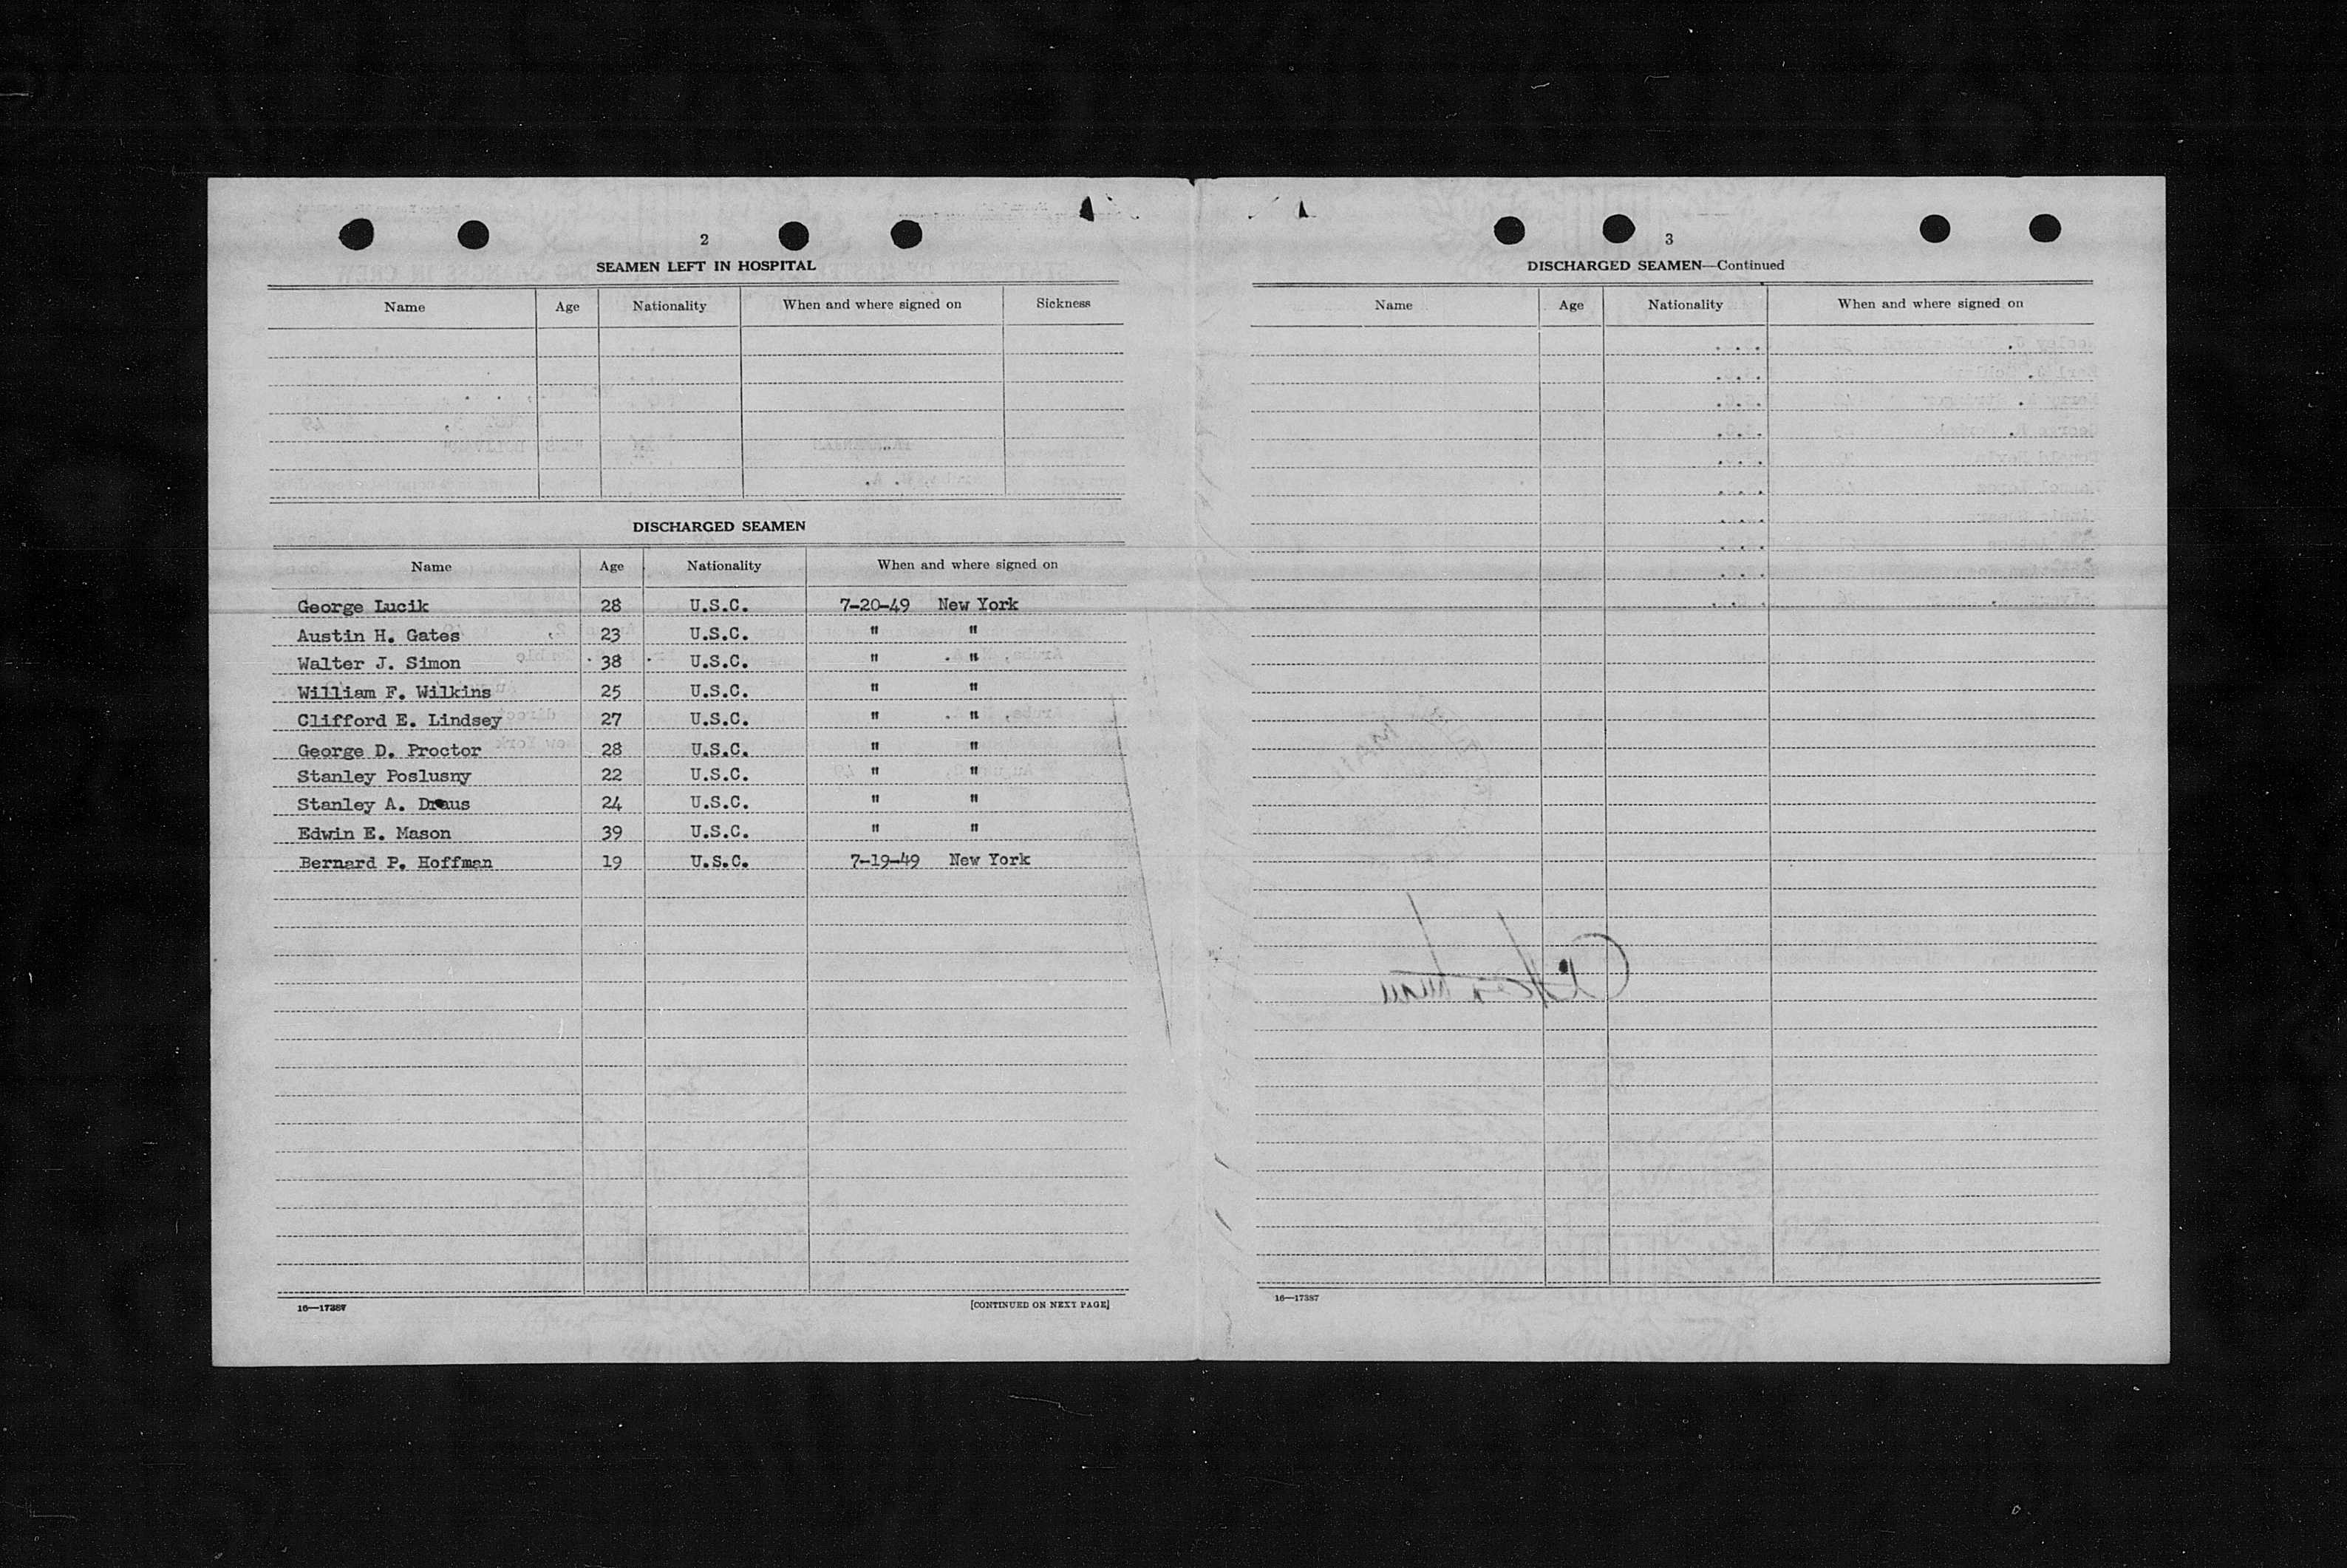 2
SEAMEN LEFT IN HOSPITAL
Name Age Nationality When and where signed on Sickness
DISCHARGED SEAMEN
Name Age Nationality When and where signed on
George Lucik 28 U.S.C. 7-20-49 New York
Austin H. Gates 23 U.S.C. " "
Walter J. Simon 38 U.S.C. " "
William F. Wilkins 25 U.S.C. " "
Clifford E. Lindsey 27 U.S.C. " "
George D. Proctor 28 U.S.C. " "
Stanley Poslusny 22 U.S.C. " "
Stanley A. Draus 24 U.S.C. " "
Edwin E. Mason 39 U.S.C. " "
Bernard P. Hoffman 19 U.S.C. 7-19-49 New York
16—17387
[CONTINUED ON NEXT PAGE]
3
DISCHARGED SEAMEN—Continued
Name Age Nationality When and where signed on
16—17387